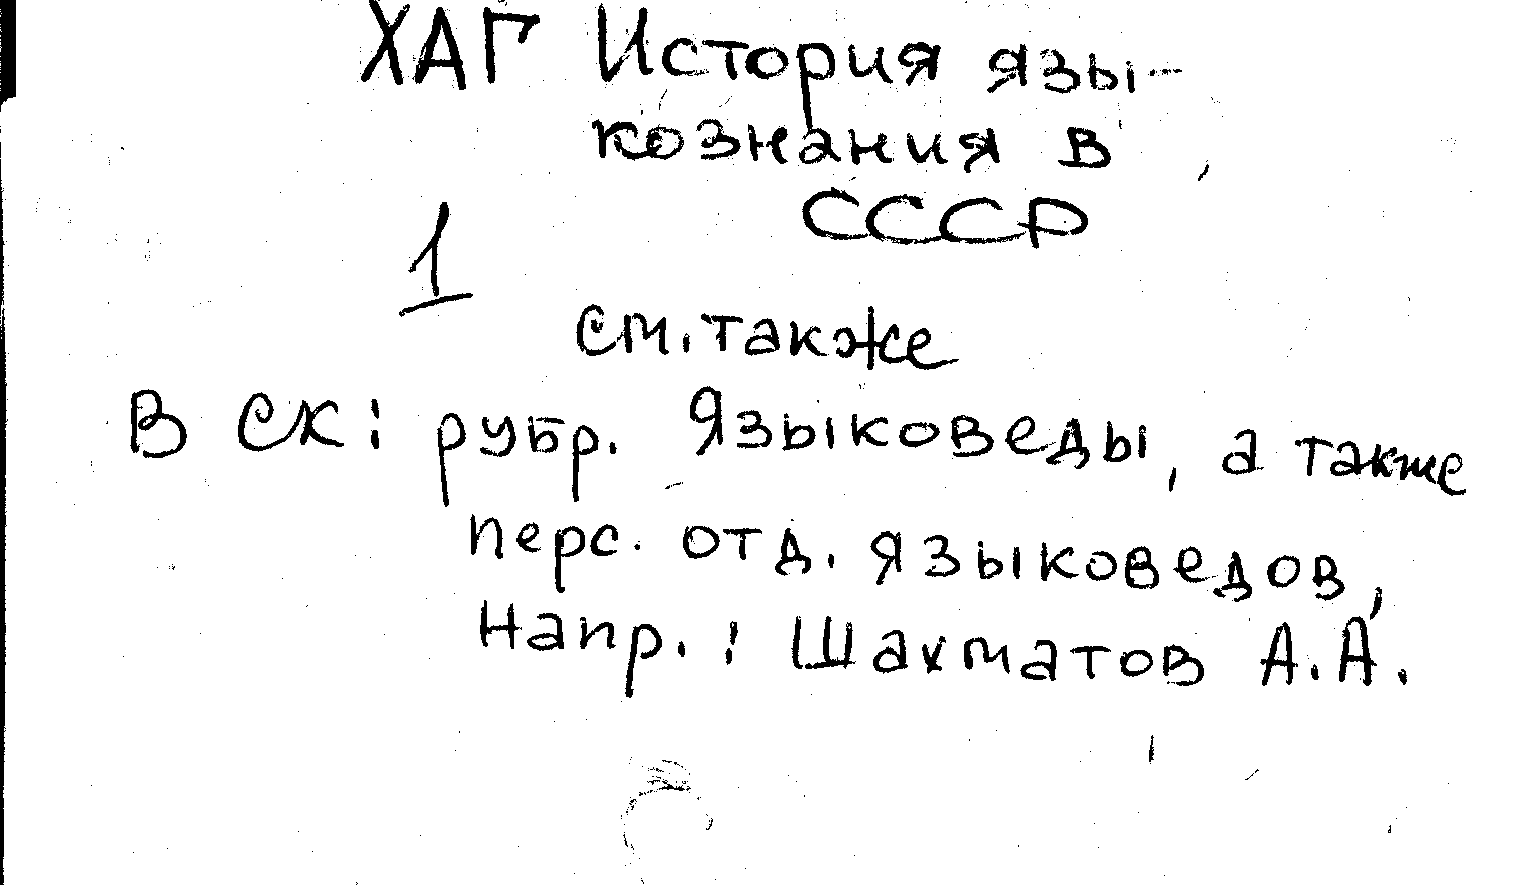 ХАГ История язы-
кознания в
СССР
1
см. также
В СК: рубр. Языковеды, а также
перс. отд. языковедов,
Напр.: Шахматов А.А.